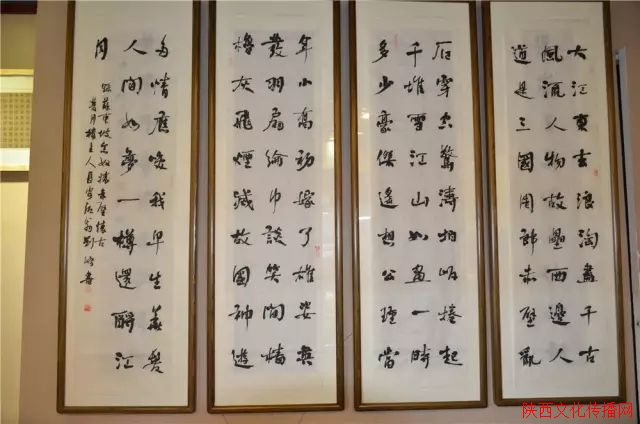 大江東去浪淘盡千古
風流人物故壘西邊人
道是三國周郎赤壁亂
石穿空驚濤拍岸捲起
千堆雪江山如畫一時
多少豪傑遙想公瑾當
年小喬初嫁了雄姿英
發羽扇綸巾談笑間檣
櫓灰飛煙滅故國神遊
多情應笑我早生華髮
人間如夢一樽還酹江
月
錄蘇東坡念奴嬌赤壁懷古
月樓主人
陕西文化传播网